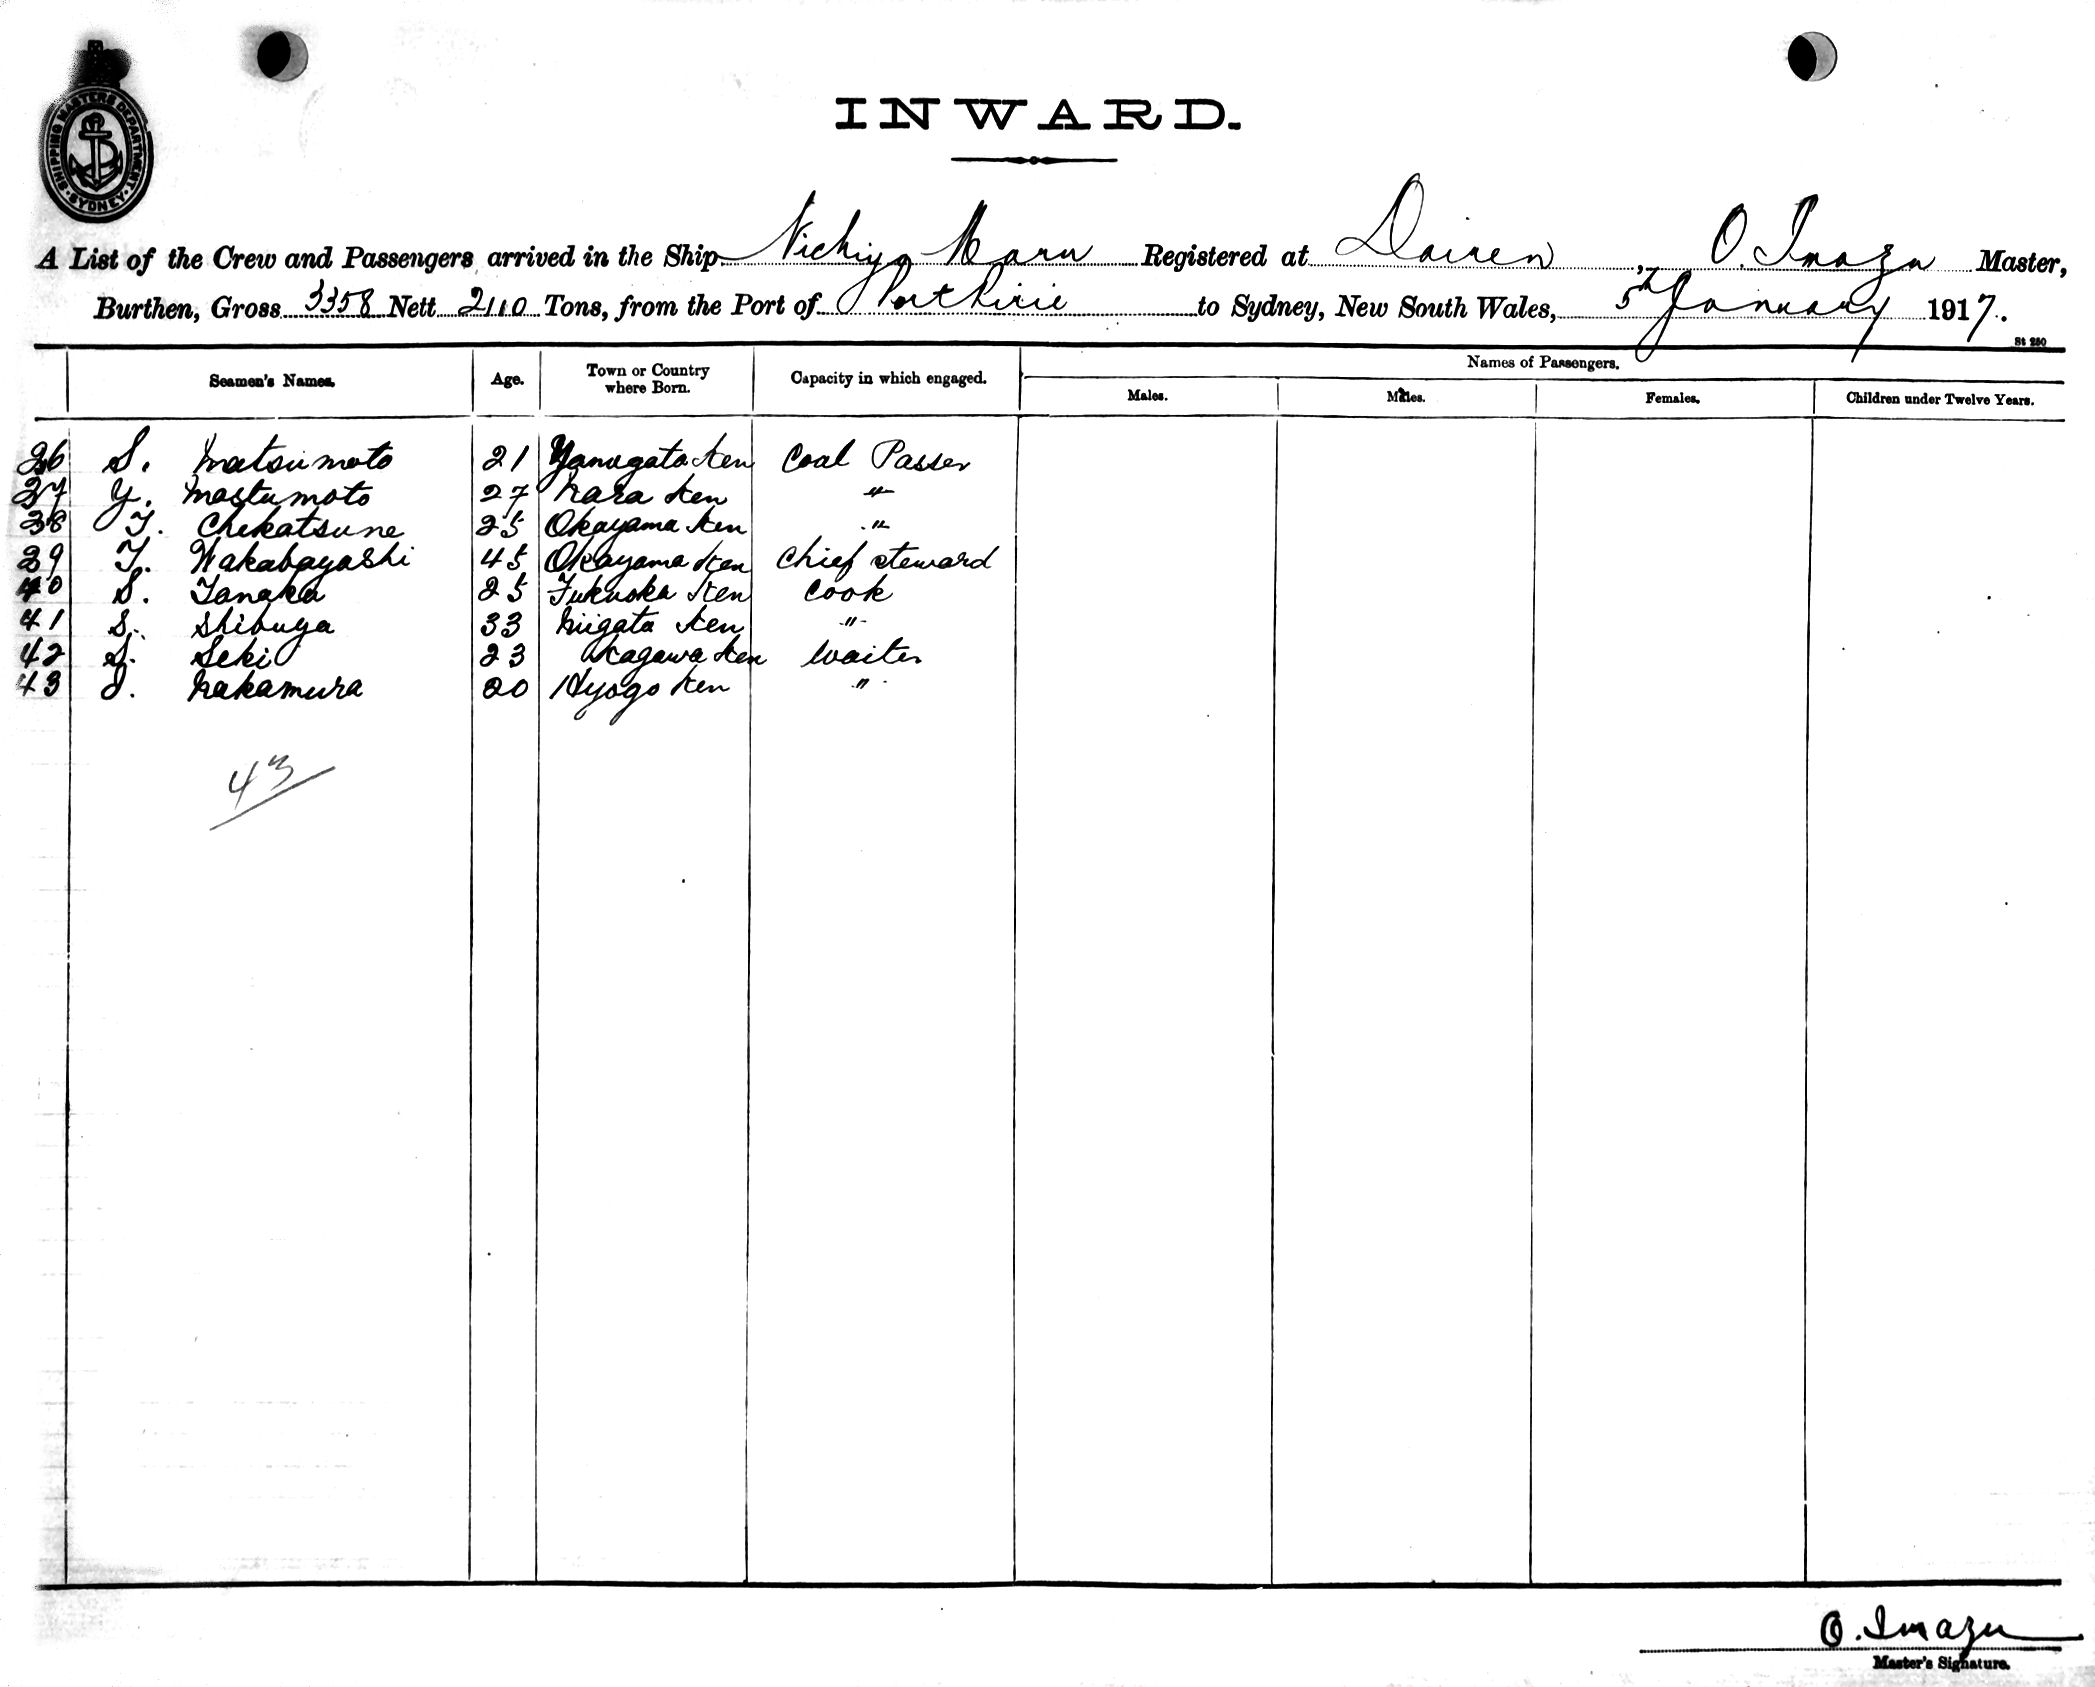 SHIPPING MASTERS DEPARTMENT · SYDNEY ·
INWARD.
A List of the Crew and Passengers arrived in the Ship Nichiyo Maru Registered at Dairen, O. Imazu Master,
Burthen, Gross 3358 Nett 2110 Tons, from the Port of Port Pirie to Sydney, New South Wales, 5th January 1917.
St 250
Seamen's Names. Age. Town or Country where Born. Capacity in which engaged. Names of Passengers.
Males. Males. Females. Children under Twelve Years.
36 S. Matsumoto 21 Yamagata Ken Coal Passer
37 Y. Mastumoto 27 Nara Ken "
38 T. Chikatsune 25 Okayama Ken "
39 T. Wakabayashi 45 Okayama Ken Chief Steward
40 S. Tanaka 25 Fukuoka Ken Cook
41 S. Shibuya 33 Niigata Ken "
42 S. Seki 23 Kagawa Ken Waiter
43 J. Nakamura 20 Hyogo Ken "
43
O. Imazu
Master's Signature.